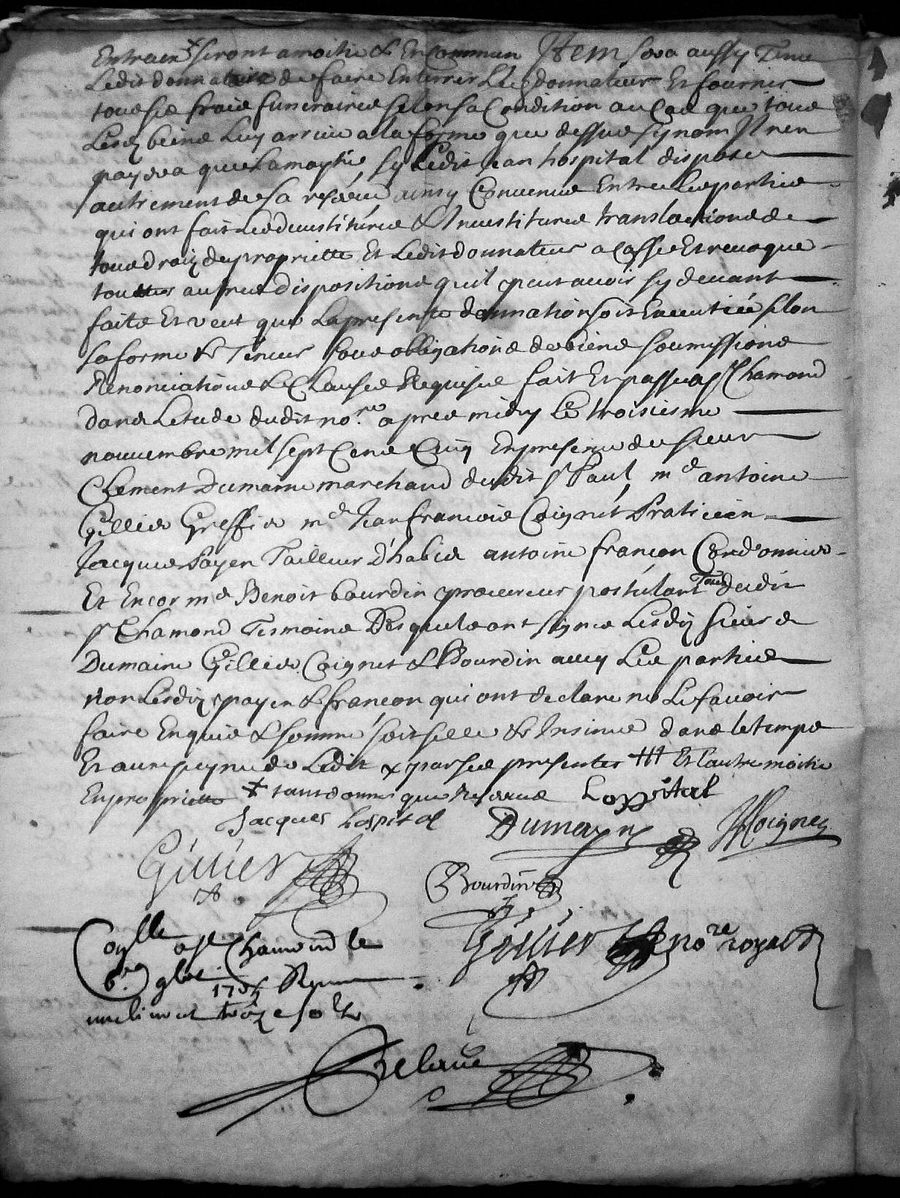 Entraux seront a moitie & En Commun Item sera aussy Tenu
Ledit donnataire de faire Enterrer Ledt donnateur Et fournir
tous se fraie funeraires selon sa Condition au Cas que tous
Lesd biens Luy arrive a la forme que dessus synom Il nen
payera que La moytie, sy Ledit Jean hospital dispose
autrement de sa reserve ainsy Convenue Entre Les parties
qui ont fait Les devestitures & Investitures translations de
tous droiz de propriette Et Ledit donnateur a Casse Et revoque
touttes autres dispositions quil peut avoir sy devant
faite Et veut que La presente donnation soit Executtée selon
sa forme & Teneur sous obligations de biens soumissions
Renonciations & Clauses Requises fait Et passe a St Chamond
dans Letude dudit nore apres midy le troisiesme
nouvembre mil sept Cens Cinq En presence de sieur
Clement Dumaine marchand dudit St Paul, me antoine
Gillier Greffier me Jean francois Coignet Praticien
Jacques payen Tailleur D'habis antoine françon Cordonnier
Et Encor me Benoit bourdin procureur postulant Tous dudit
St Chamond Tesmoins Desquels ont signe Lesdz sieurs
Dumaine Gillier Coignet & Bourdin avec Les parties
Non Lesdz payen & françon qui ont declare ne Le savoir
faire Enquis & sommé, soit selle & Insinue dans le temps
Et aux peyne de Ledit par ses presentes ttt Et Lautre moitie
En propriette x tant donne que Reserve Lospital
Jacques Lospital Dumayne JFCoignet
Gillier Bourdin
Gillier nore royal
Coylle a St Chamond le
6e 9bre 1705 Reçu
une livre treize sols
Delarue